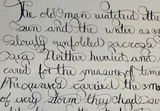 The old man watched the
sun and the writer as
slowly unfolded across
Neither hurried, and
cared for the measure of time
carried the
of very storm they had